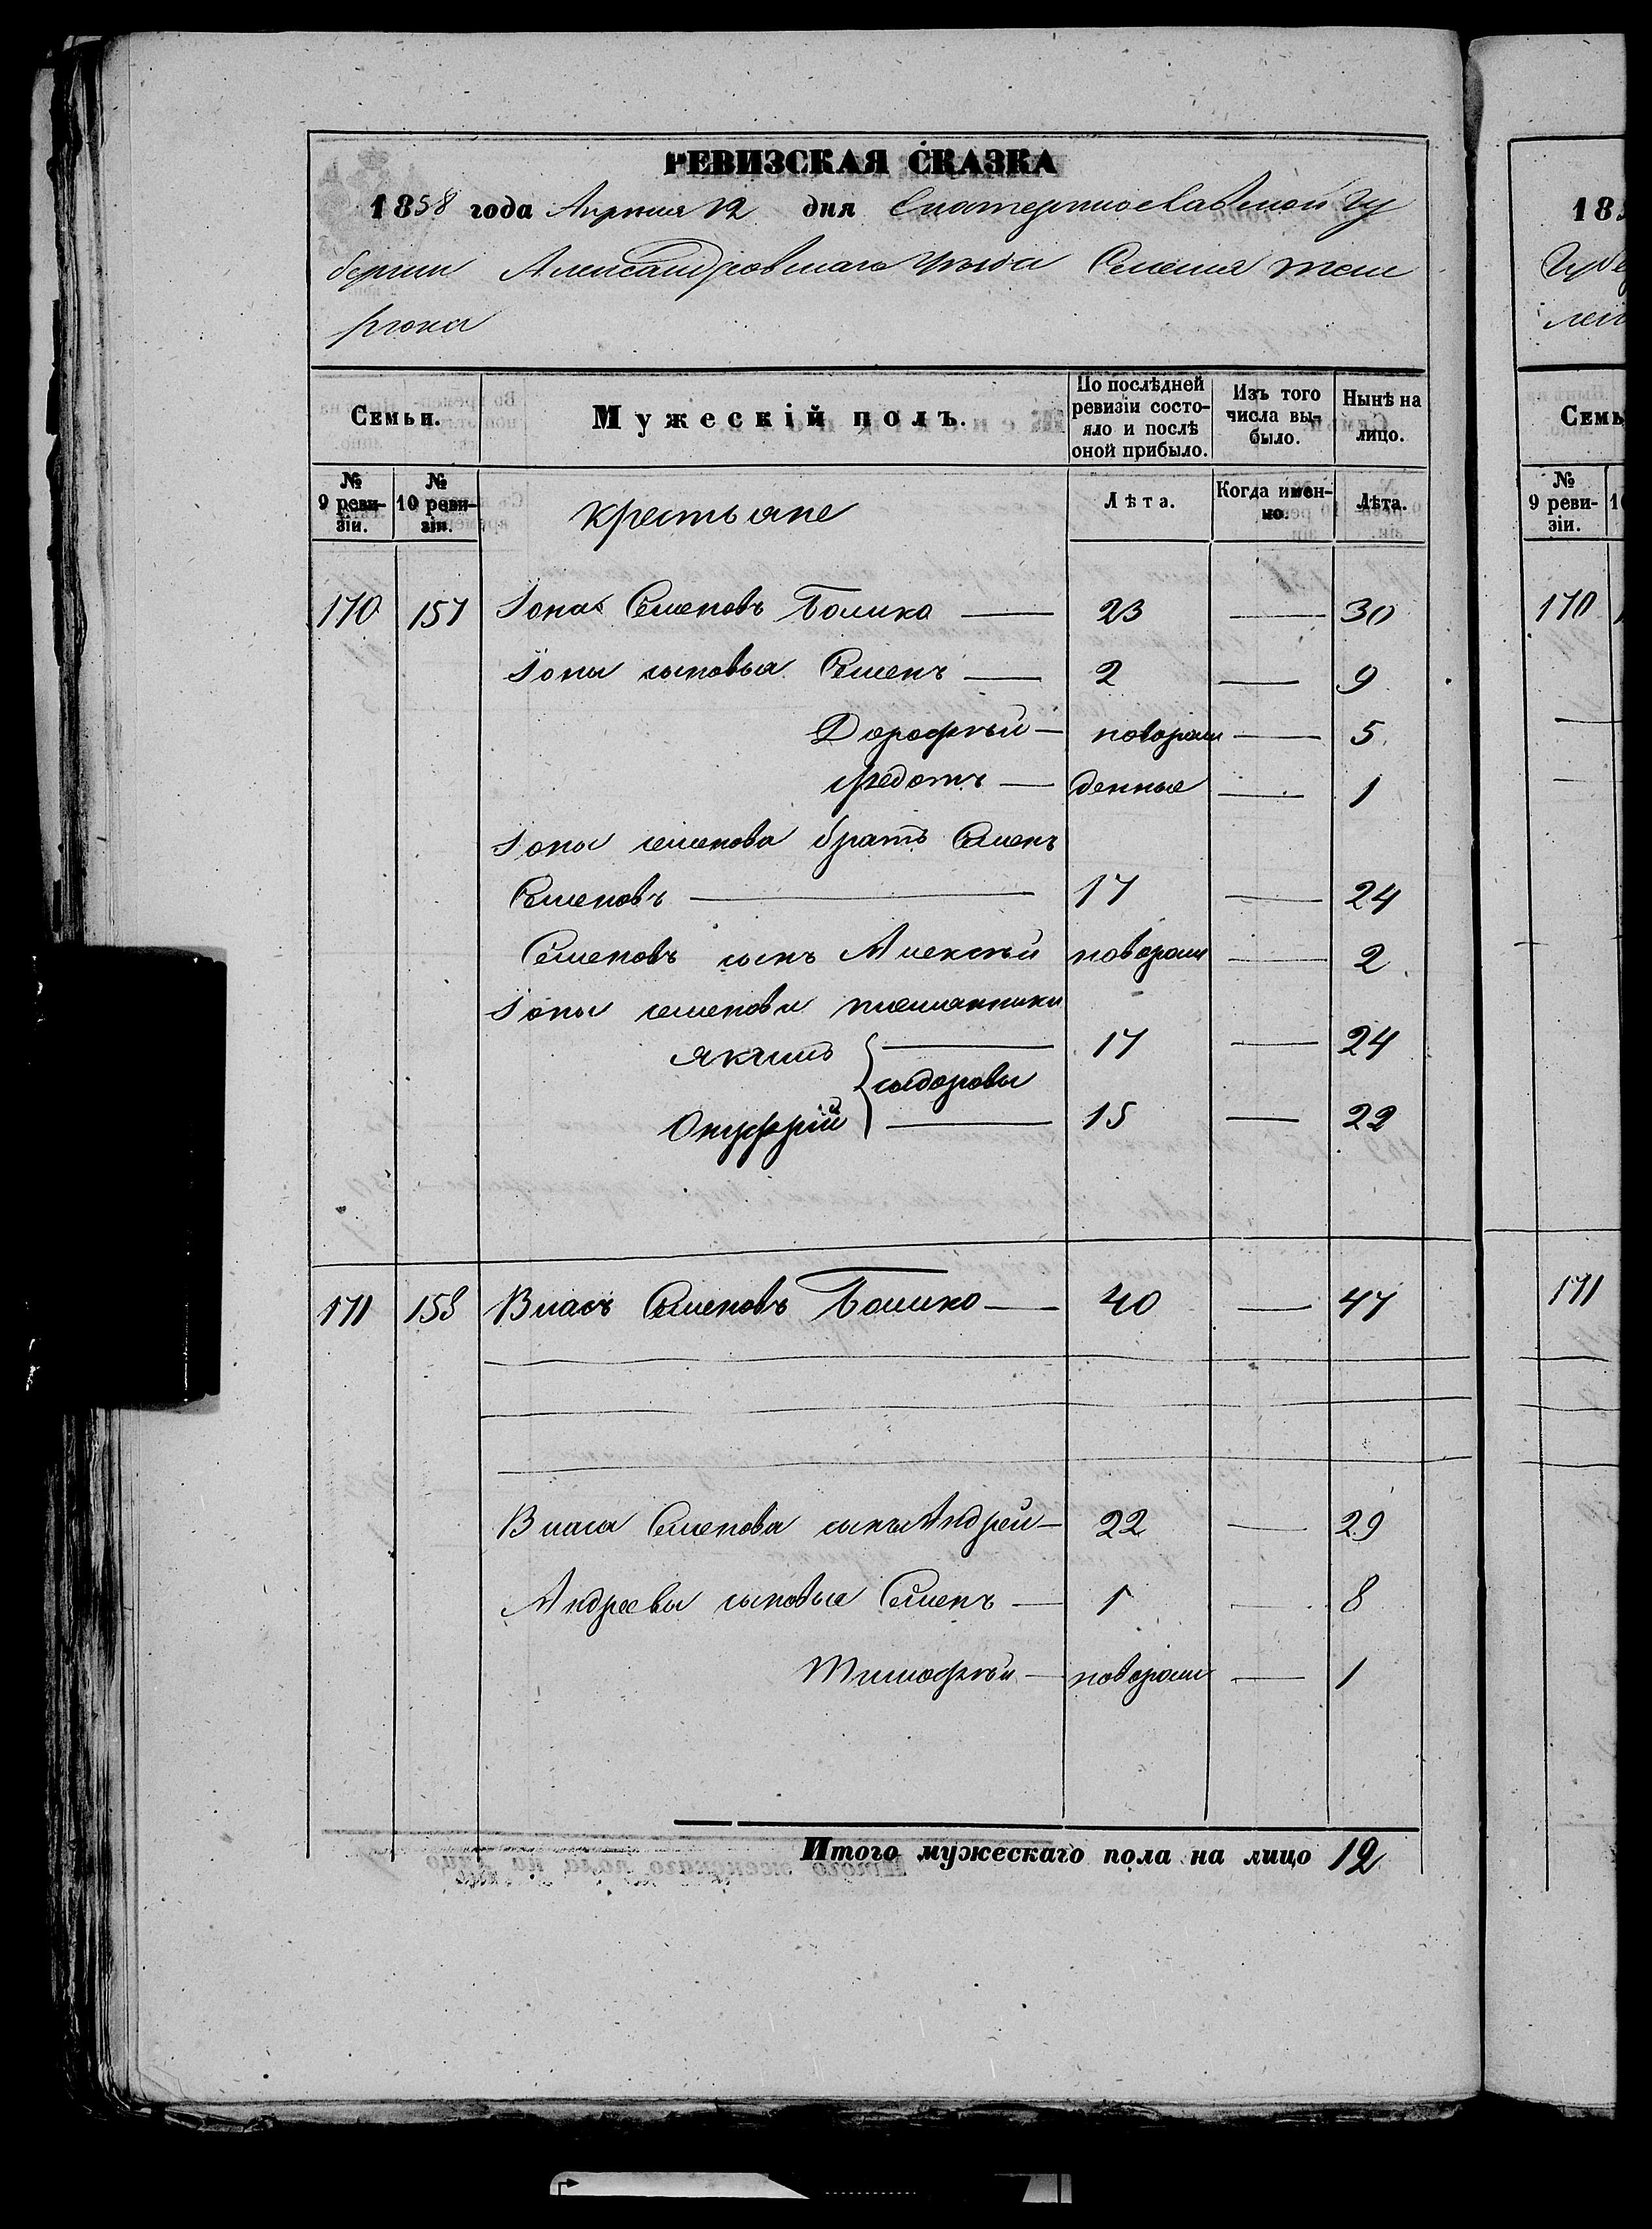 РЕВИЗСКАЯ СКАЗКА
1858 года Апреля 12 дня Екатеринославской Гу
берніи Александровскаго уѣзда Селенія Тем
рюка
Семьи. Мужескій полъ. По послѣдней ревизіи состояло и послѣ оной прибыло. Изъ того числа выбыло. Нынѣ на лицо.
№ 9 ревизіи. № 10 ревизіи. крестьяне Лѣта. Когда именно. Лѣта.
170 157 Іона Семеновъ Бошко — 23 — 30
Іоны сыновья Семенъ — 2 — 9
Дорофѣй — новорож — 5
Федотъ — денные — 1
Іоны семенова братъ Семенъ
Семеновъ — 17 — 24
Семеновъ сынъ Алексѣй новорож — 2
Іоны семенова племянники
Якимъ — 17 — 24
сидоровы
Онуфрій — 15 — 22
171 158 Власъ Семеновъ Бошко — 40 — 47
Власа Семенова сынъ Андрей — 22 — 29
Андреевы сыновья Семенъ — 1 — 8
Тимофѣй — новорож — 1
Итого мужескаго пола на лицо 12
185
Губе
Семь
№ 9 ревизіи.
170
171